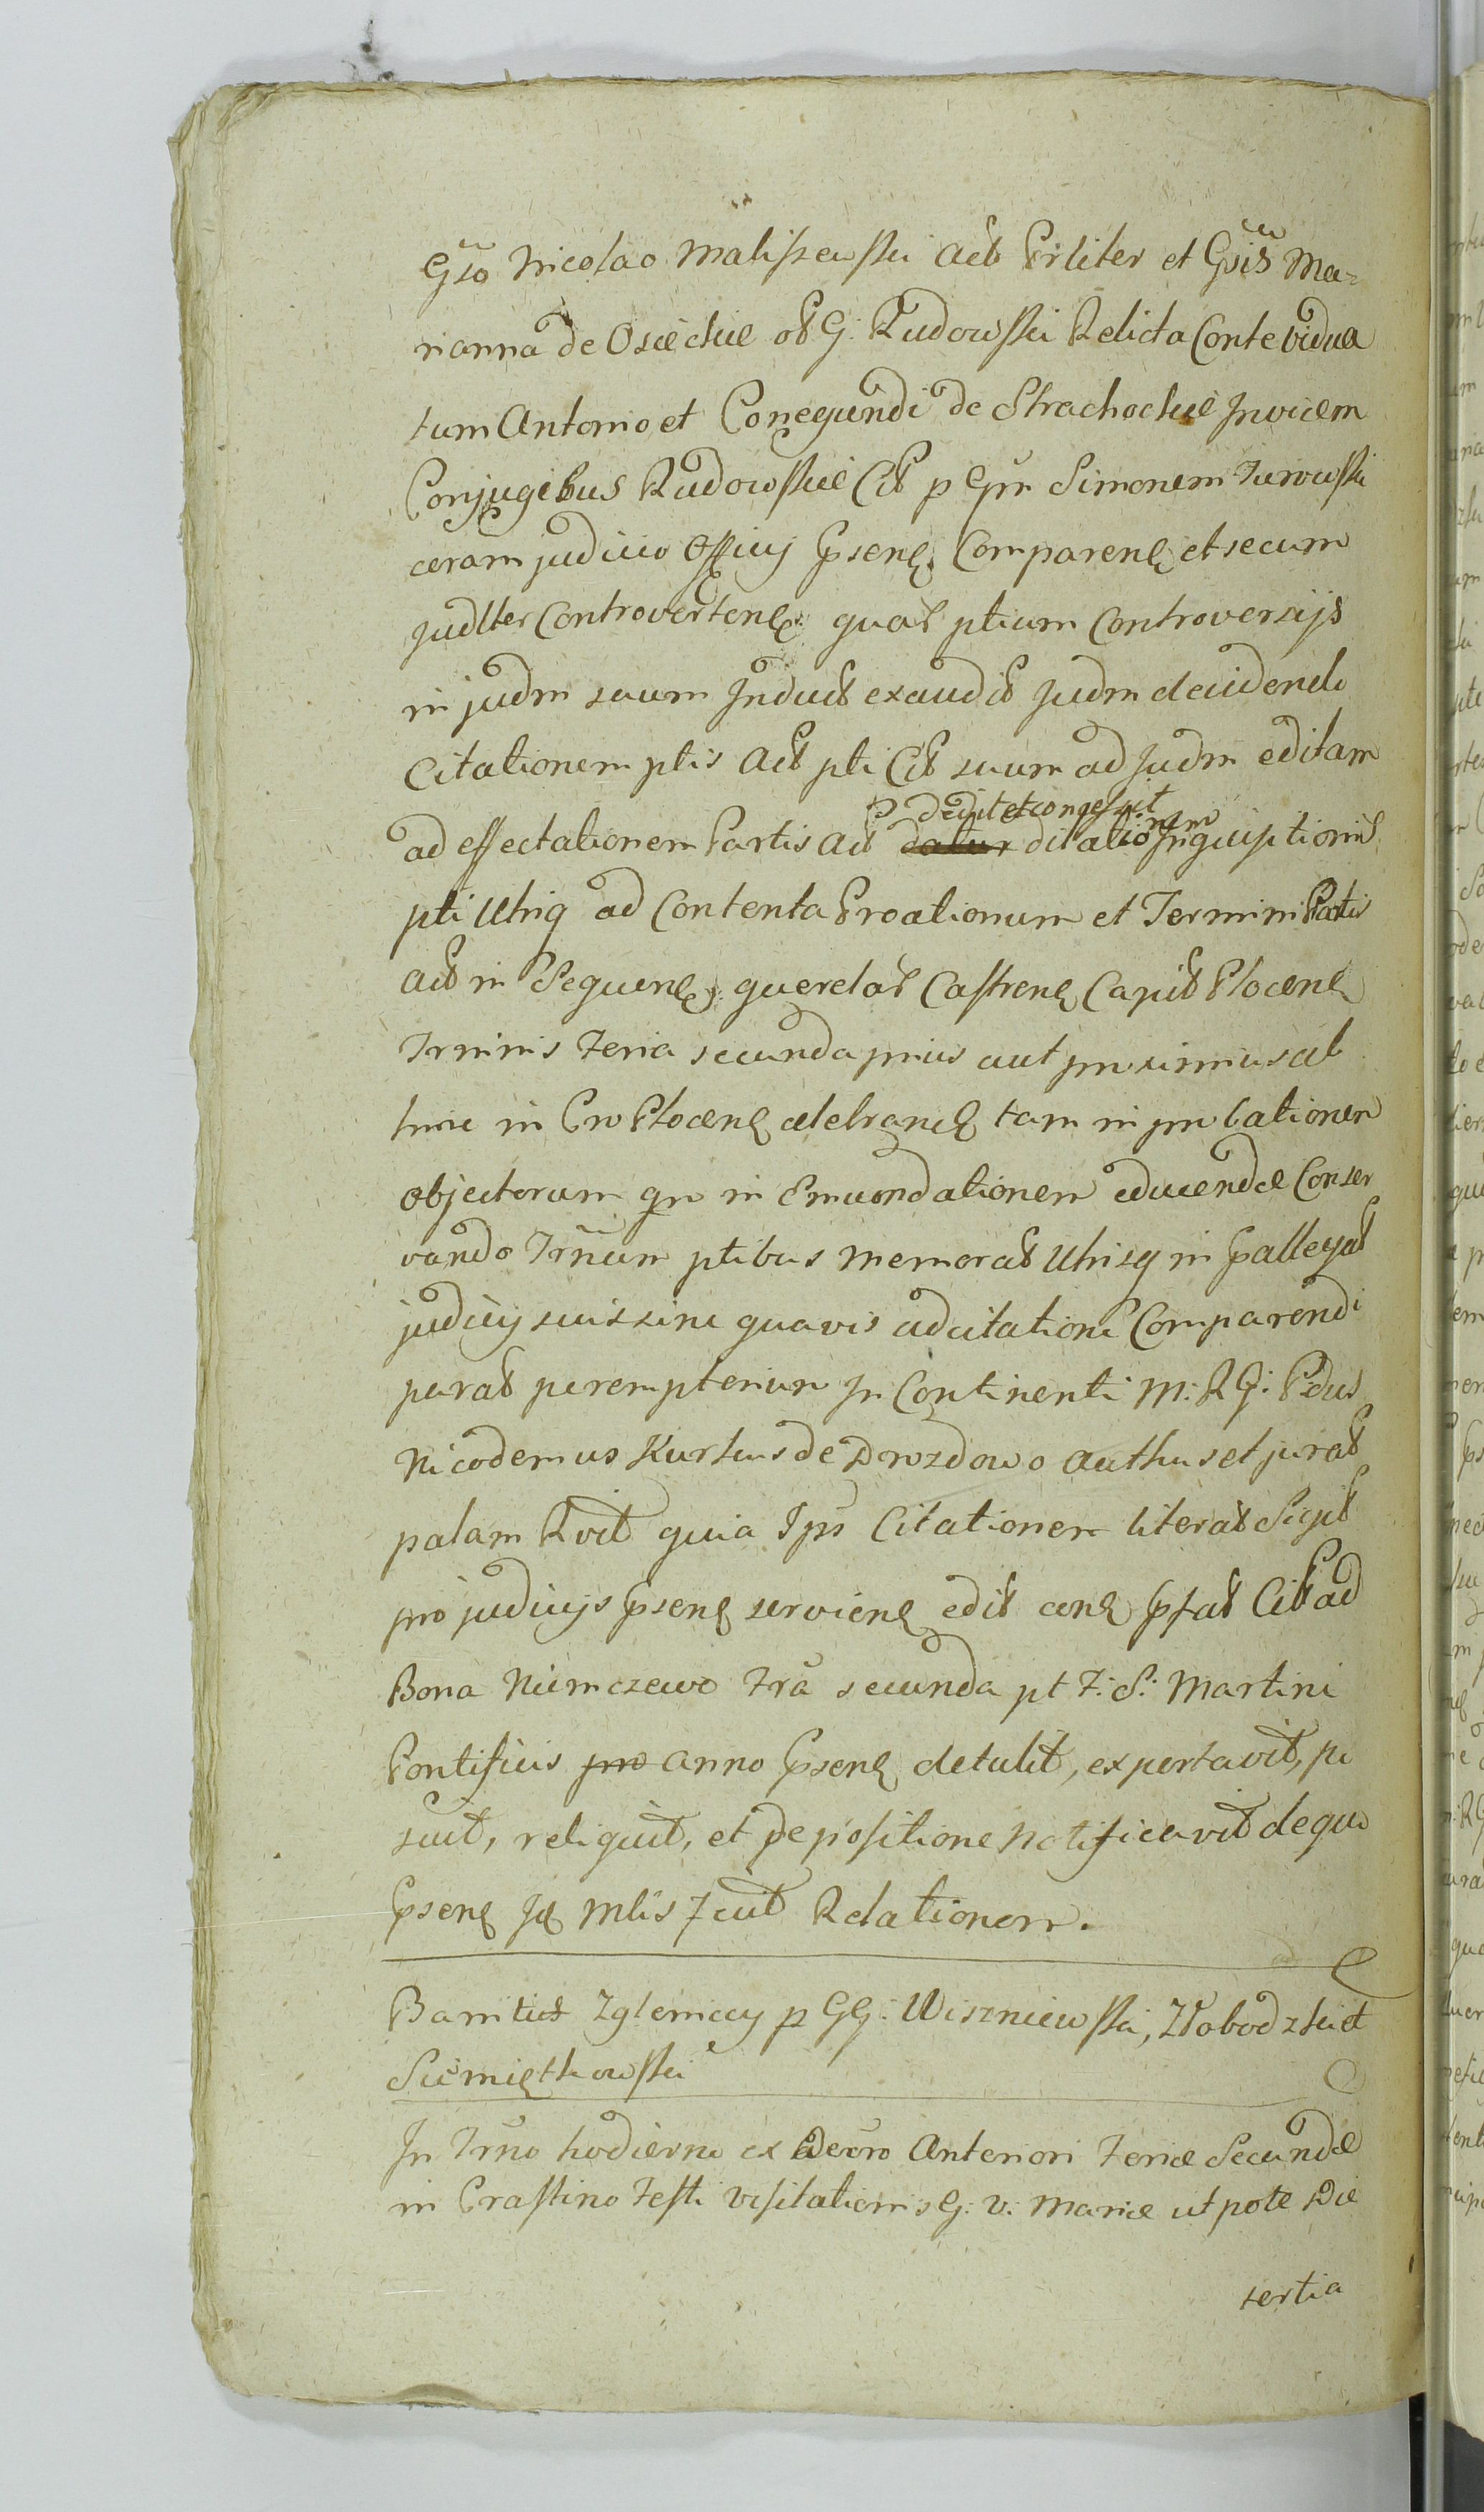 Gso Nicolao Maliszewski Act Prliter et Gsis Ma-
rianna de Osieckie ol G: Rudowski Relicta Conte vidua
tum Antonio et Conegundi de Strachockie Invicem
Conjugibus Rudowskie Cit p Gm Simonem Turowski
coram judicio Officij Psens Comparens et secum
Judlter Controvertens quar ptium Controversijs
in judm suum Induct exaudit Judm decidendo
Citationem ptis Act pti Cit suum ad Judm editam
dedit et congessit
ad affectationem Partis Act datur dilationem Inquisitionis
pti Utriq ad Contenta Proationum et Termini Partis
Act in Sequens querelar Castrens Capit Plocens
Trminis Feria secunda prius aut proximius ab
hinc in Cro Plocens celebrand tam in probationem
objectorum qm in Emundationem educendae Conser
vando Trnum ptibus memorat Utrisq in Pallegat
judicij sui sine quavis adcitatione Comparendi
parat peremptorium In Continenti M: R G: Pidus
Nicodemus Kurtius de Drozdowo authus et jurat
palam Rvit quia Ips Citationem literat Script
pro judicijs Psens serviens edit cens Pfat Cit ad
Bona Niemczewo Fra secunda pt F: S: Martini
Pontificis pro anno Psens detulit, exportavit, po
suit, reliquit, et de positione notificavit de quo
Psens Js Mlis Fcit Relationem.
Banitus Zgleniccy p GG: Wiszniewski, Zlobodzki et
Siemiętkowski
In Trno hodierno ex Decro Anteriori Feriae Secundae
in Crastino Festi Visitationis G: V: Mariae utpote Die
tertia